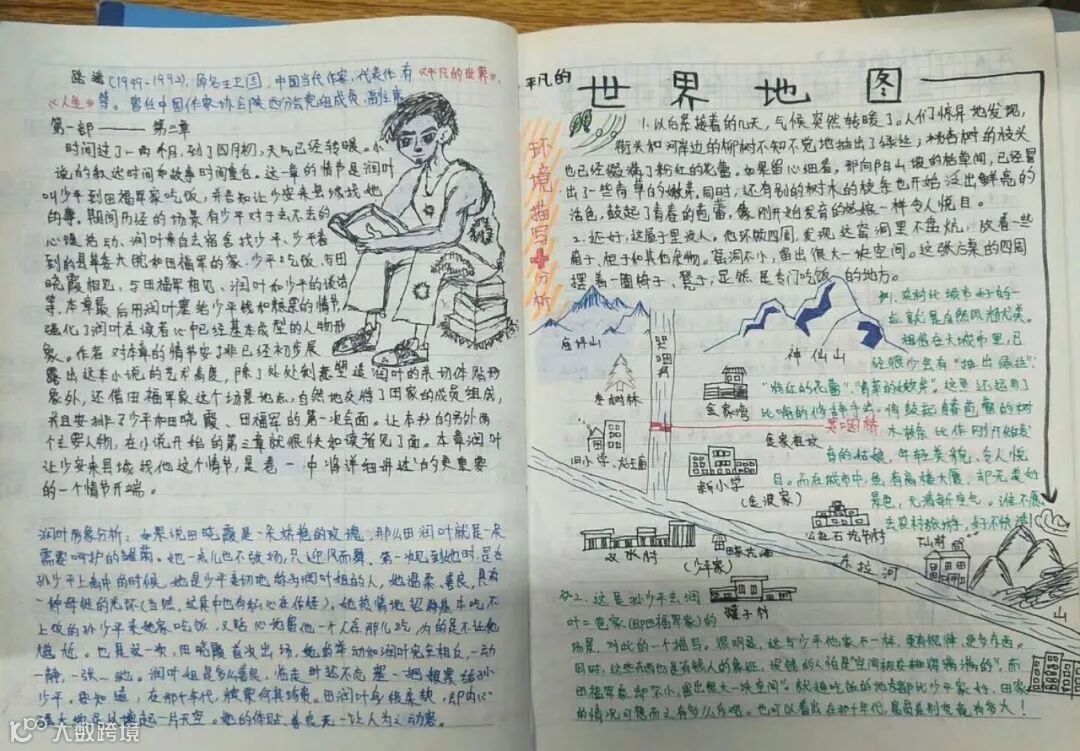 路遥(1949-1992),原名王卫国,中国当代作家,代表作有《平凡的世界》、
《人生》等。曾任中国作家协会陕西分会党组成员、副主席
第一部——第三章
时间过了一两个月,到了四月初,天气已经转暖。小
说的叙述时间和故事时间重合。这一章的情节是润叶
叫少平到田福军家吃饭,并告知让少安来县城找她
的事。期间历经的场景有少平对于去不去的
心理活动、润叶亲自去宿舍找少平、少平看
到的县革委大院和田福军的家、少平吃饭、与田
晓霞相见、与田福军相见、润叶和少平的谈话
等。本章最后用润叶塞给少平钱和粮票的情节,
强化了润叶在读者心中已经基本成型的人物形
象。作者对本章的情节安排已经初步展
露出这本小说的艺术高度,除了处处刻意塑造润叶的亲切体贴形
象外,还借田福军家这个场景地点,自然地交待了田家的成员组成,
并且安排了少平和田晓霞、田福军的第一次会面。让本书的另外两
个主要人物,在小说开始的第三章就很快和读者见了面。本章润叶
让少安来县城找他这个情节,是卷一中将详细毋述的更重要
的一个情节开端。
润叶形象分析:如果说田晓霞是一朵娇艳的玫瑰,那么田润叶就是一朵
需要呵护的雏菊。她一点儿也不张扬,只迎风而舞。第一次见到她时,是在
孙少平上高中的时候,她是少平亲切地称与润叶姐的人,她温柔、善良,具有
一种母性的光环(当然,这其中也有私心在作怪)。她热情地招呼基本吃不
上饭的孙少平来她家吃饭,又贴心地留他一个人在那儿吃,为的是不让他
尴尬。也是这一次,田晓霞首次出场,她的举动和润叶完全相反,一动
一静,一张一弛。润叶姐是多么善良,临走时还不忘塞一把粮票给孙
少平,要知道,在那个年代,粮票何其珍贵。田润叶身体柔软,却内心
强大地足以撑起一片天空。她的体贴、善良无一让人为之动容。
平凡的
世界地图
环境描写+分析
1.以后紧接着的几天,气候突然转暖了。人们惊异地发现,
街头和河岸边的柳树不知不觉地抽出了绿丝;桃杏树的枝头
也已经缀满了粉红的花蕾。如果留心细看,那向阳山坡的枯草间,已经冒
出了一些青草的嫩芽。同时,还有别的树木的枝条也开始泛出鲜亮的
活色,鼓起了青春的苞蕾,像刚开始发育的姑娘一样令人悦目。
2.还好,这屋子里没人。他环顾四周,发现这窑洞里不盘炕,放着一些
箱子、柜子和其他杂物。窑洞不小,留出很大一块空间。这张饭桌的四周
摆着一圈椅子、凳子,显然是专门吃饭的地方。
析1.农村比城市好的一
点就是自然风光优美。
相信在大城市里,已
经很少会有“抽出绿丝”
“粉红的花蕾”“青草的嫩芽”。这里还运用了
比喻的修辞手法,将鼓起青春苞蕾的树
木枝条比作刚开始发
育的姑娘,年轻美貌、令人悦
目。而在城市中,虽有高楼大厦,却无美好
景色,无清新空气。谁不愿
去农村旅游,好不惬意!
庙坪山
哭咽河
神仙山
枣树林
金家湾
哭咽桥
金家祖坟
旧小学、龙王庙
新小学
(金波家)
双水村
田家圪崂
(少平家)
公社石圪节村
东拉河
下山村
罐子村
山
析2.这是孙少平去润
叶二爸家(即田福军家)的
场景,对此的一个描写。很明显,这与少平他家不一样,更有规律,更多东西。
同时,这些东西也是有钱人的象征,没钱的人怕是“空间被各种摆满满的”。而
田福军家却“不小,留出很大一块空间”。就连吃饭的地方都比少平家好,田家
的情况可想而又有多么乐观。也可以看出在那个年代,富贫差别究竟有多大!
大数跨境